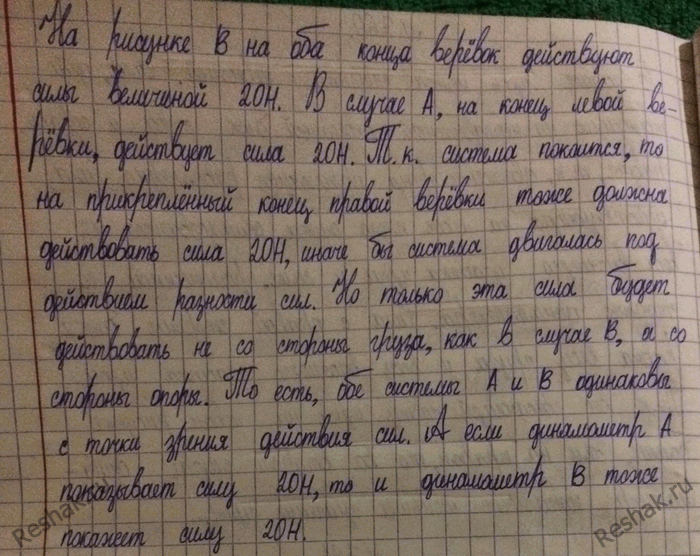 На рисунке В на оба конца верёвок действуют
силы величиной 20Н. В случае А, на конец левой ве-
рёвки, действует сила 20Н. Т.к. система покоится, то
на прикреплённый конец правой верёвки тоже должна
действовать сила 20Н, иначе бы система двигалась под
действием разности сил. Но только эта сила будет
действовать не со стороны груза, как в случае В, а со
стороны опоры. То есть, обе системы А и В одинаковы
с точки зрения действия сил. А если динамометр А
показывает силу 20Н, то и динамометр В тоже
покажет силу 20Н.
Reshak.ru
Reshak.ru